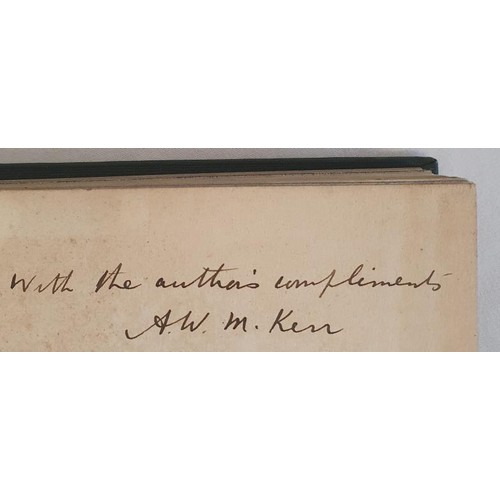 With the author's compliments
A. W. M. Kerr